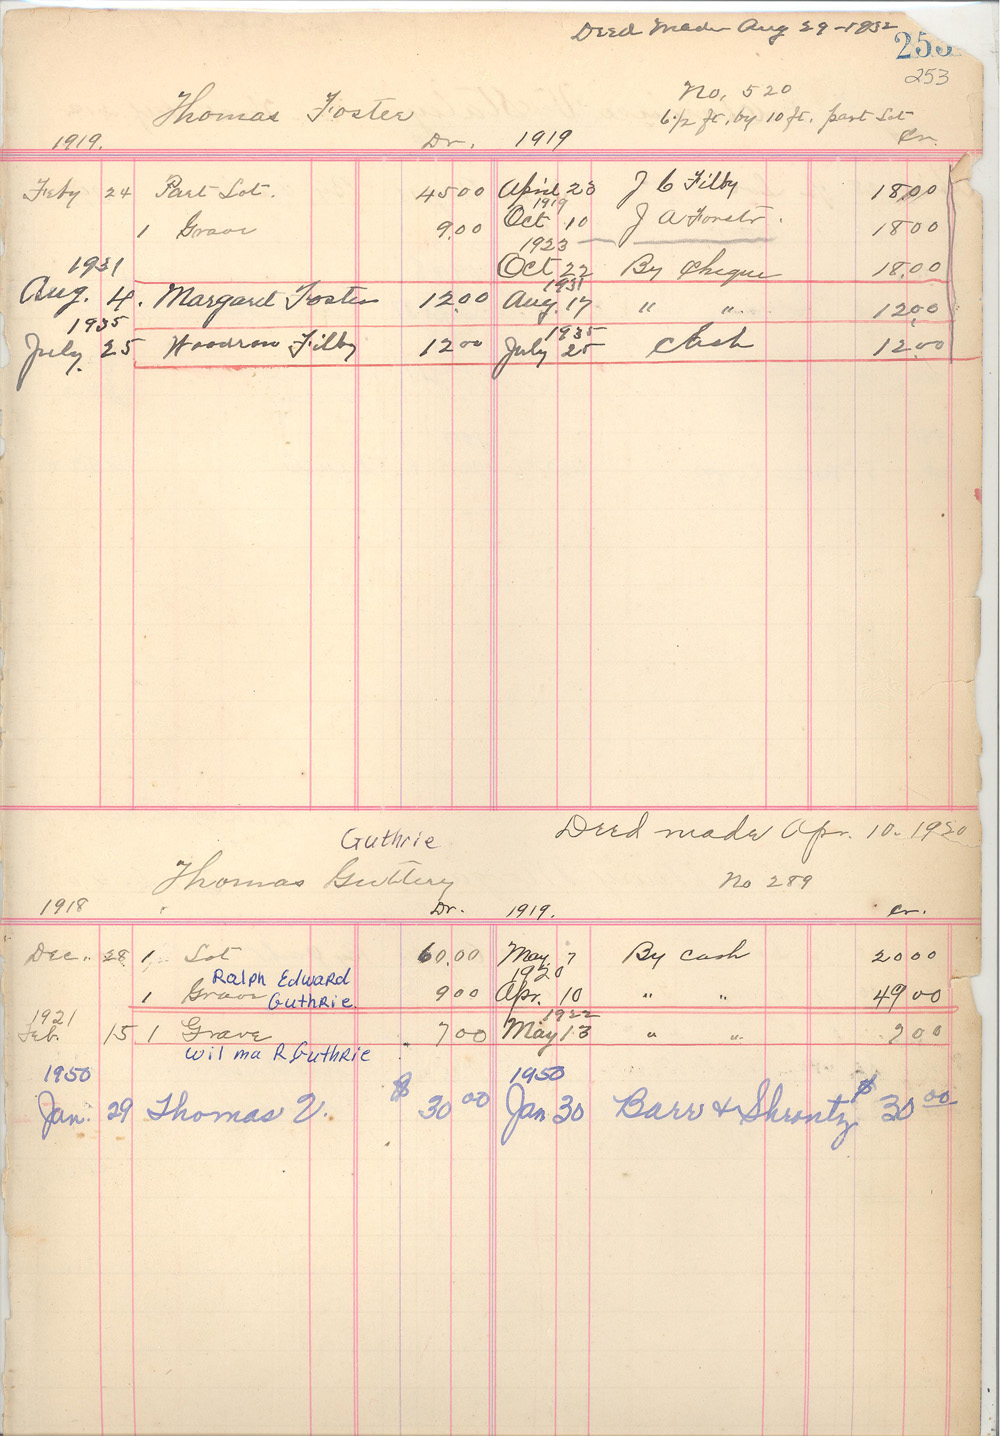 Deed Made Aug 29-1932
253
253
Thomas Foster No. 520
6 1/2 ft. by 10 ft. part Lot
1919. Dr. 1919 Cr.
Feby 24 Part Lot. 45 00 April 23 J C Filby 18.00
1919
1 Grave 9.00 Oct 10 J A Forstr. 18 00
1923
1931 Oct 22 By Cheque 18.00
1931
Aug. 4. Margaret Foster 12.00 Aug. 17 " " 12.00
1935 1935
July 25 Woodrow Filby 12 00 July 25 Cash 12.00
Guthrie Deed made Apr. 10. 1920
Thomas Guttery No 289
1918 Dr. 1919. Cr.
Dec. 28 1 Lot 60.00 May 7 By cash 20 00
Ralph Edward 1920
1 Grave Guthrie 9 00 Apr. 10 " " 49 00
1921 1922
Feb. 15 1 Grave 7 00 May 13 " " 7 00
Wilma R Guthrie
1950 1950
Jan. 29 Thomas V. $ 30 00 Jan 30 Barr & Shrontz $ 30 00